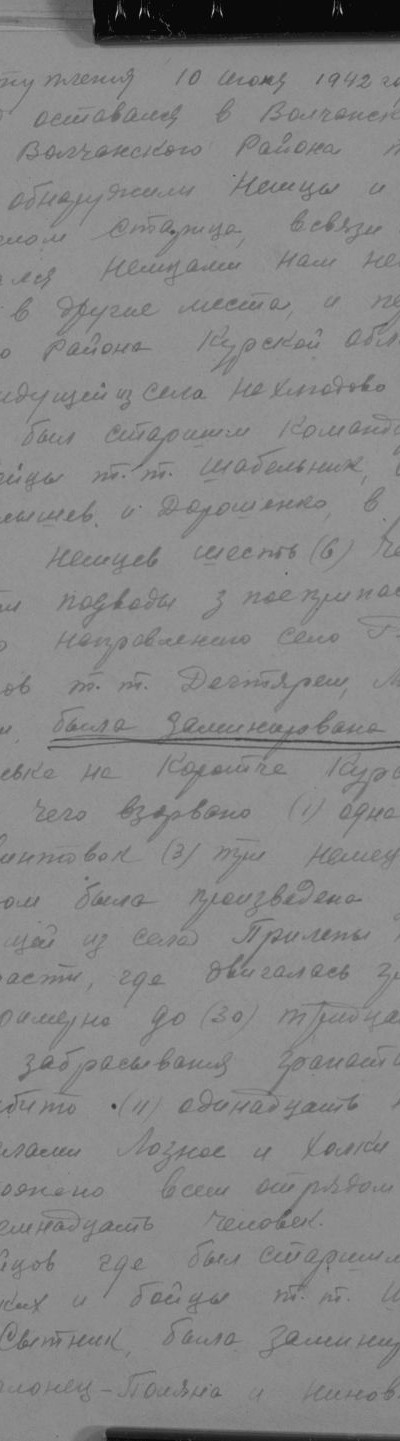 тупления 10 июня 1942 го
оставался в Волчанск
Волчанского Района
обнаружили Немцы и
старица, всвязи
Немцами нам не
в другие места, и пе
о Района Курской обл
идущей из села Нехлюдово
был старшим Команд
йцы т.т. Шабельник,
лышев и Дорошенко, в
Немцев шесть (6) че
подводы з поеприпас
о направлению село
ов т.т. Дегтярем,
была заминирована
евка на Короча Курс
чего взорвано (1) одна
винтовок (3) три немец
ом была произведена
щей из села Прилепы
расти, где двигалась
римерно до (30) тридца
забрасывания гранат
бито (11) одинадцать
лами Лозное и Холки
всем отрядом
емнадцать человек.
йцов где был старшим
ких и бойцы т.т.
Сытник, была замини
Поляна и